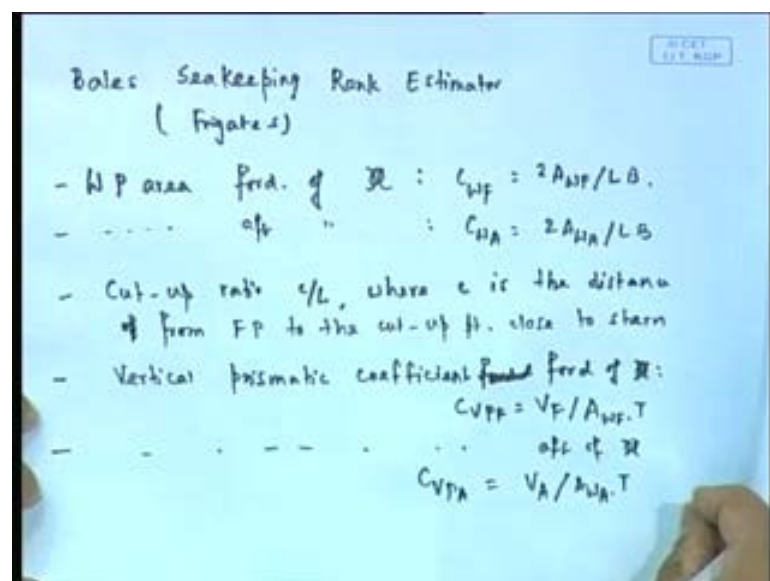 Bales Seakeeping Rank Estimator
( Frigates)
- WP area ford. of ⦻ : C_WF = 2A_WF/LB.
- ..... aft " : C_WA = 2A_WA/LB
- Cut-up ratio c/L, where c is the distance
of from FP to the cut-up pt. close to stern
- Vertical prismatic coefficient ford of ⦻:
C_VPF = V_F/A_WF.T
- - . - - . .. aft of ⦻
C_VPA = V_A/A_WA.T